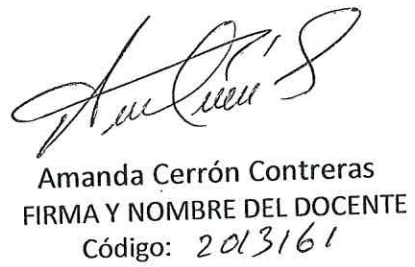 Amanda Cerrón Contreras
FIRMA Y NOMBRE DEL DOCENTE
Código: 2013161